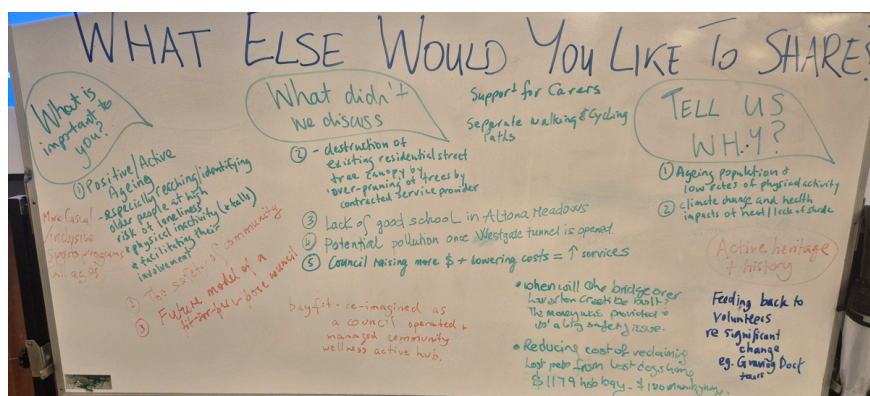 WHAT ELSE WOULD YOU LIKE TO SHARE?
What is
important to
you?
① Positive/Active
Ageing
- especially reaching/identifying
older people at high
risk of loneliness
+ physical inactivity (+ falls)
+ facilitating their
involvement
More Casual
/inclusive
Sports programs
all ages
2 The safety of community
③ Future model of a
fit-for-purpose council
What didn't
we discuss
② - destruction of
existing residential street
tree canopy by
over-pruning of trees by
contracted service provider
③ Lack of good school in Altona Meadows
④ Potential pollution once Westgate tunnel is opened.
⑤ Council raising more $ + lowering costs = ↑ services
bayfit - re-imagined as
a council operated +
managed community
wellness active hub.
Support for Carers
Seperate walking & Cycling
Paths
• when will the bridge over
Creek be built?
The money was provided
a big safety issue.
• Reducing cost of reclaiming
Lost pets from Lost dogs home
$1179 hobbay -
TELL US
WHY?
① Ageing population &
low rates of physical activity
② climate change and health
impacts of heat / lack of shade
Active heritage
+ history
Feeding back to
volunteers
re significant
change
eg. Graving Dock
tours